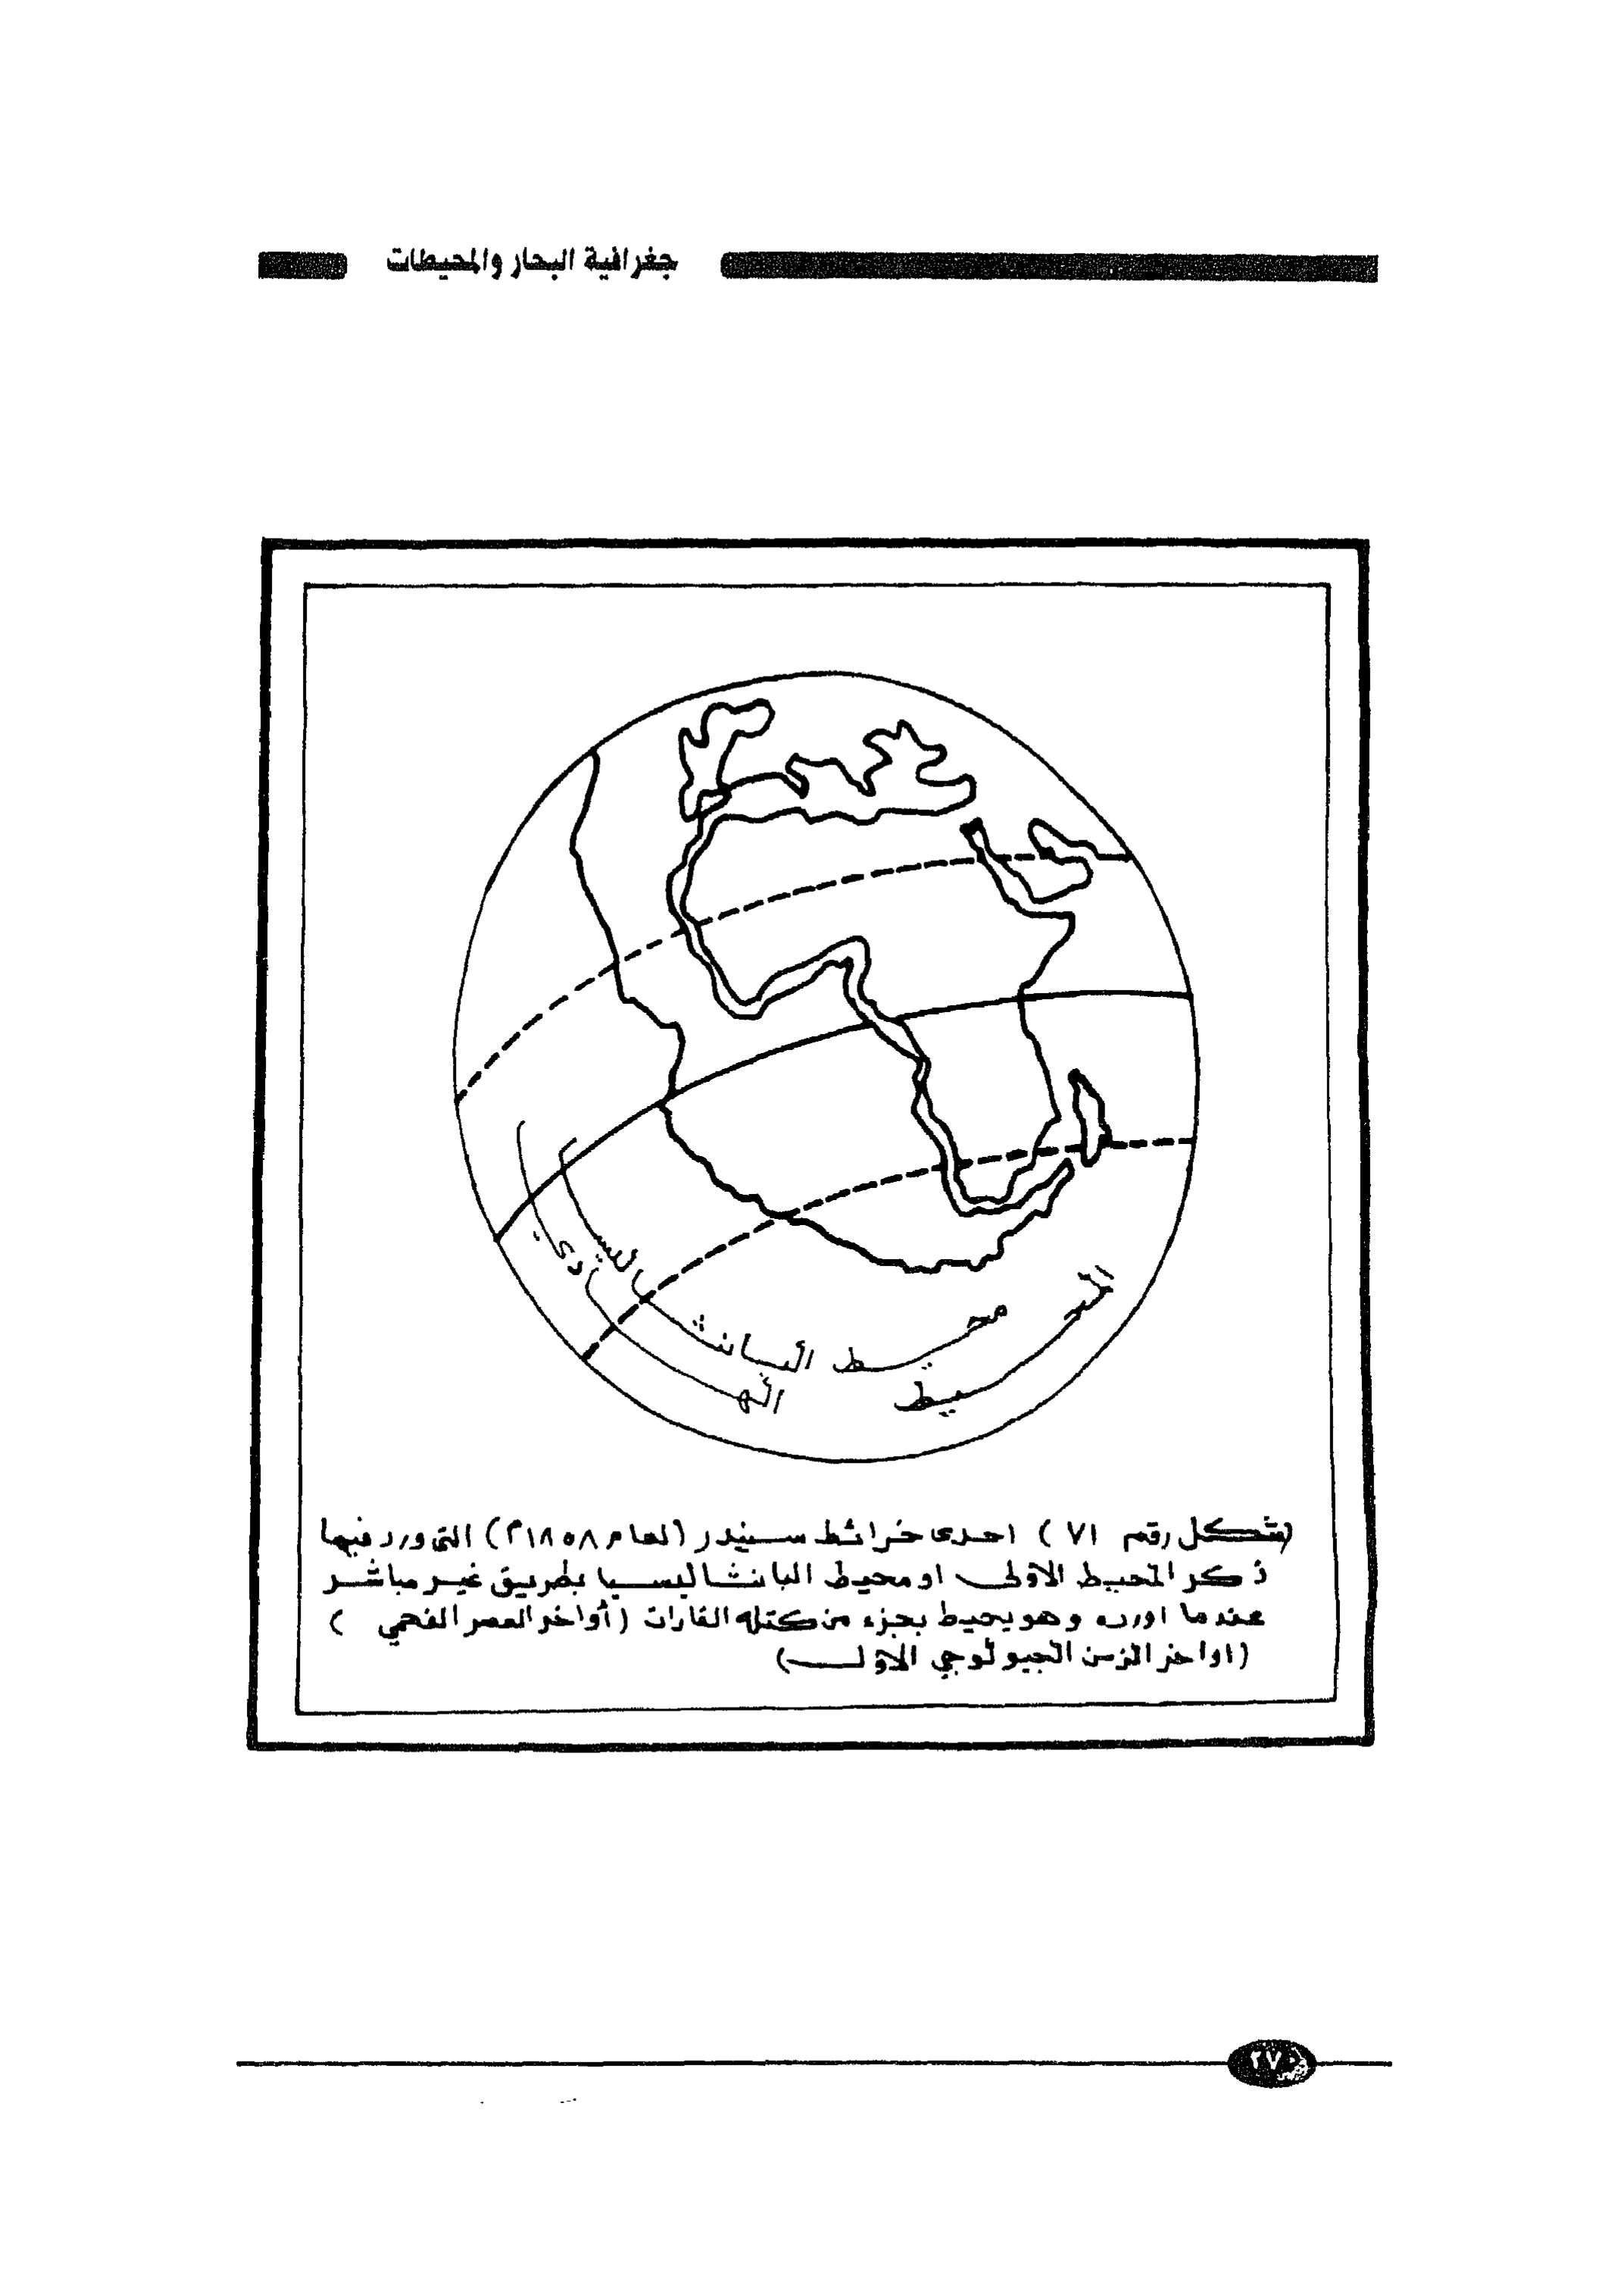 جغرافية البحار والمحيطات
المحيط الهادي
محيط البانثالسا
(شكل رقم ٧١ ) احدى خرائط سنيدر (لعام ١٨٥٨م) التى ورد فيها
ذكر المحيط الاولى او محيط البانثاليسيا بطريق غير مباشر
عندما اورده وهو يحيط بجزء من كتله القارات (أواخر العصر الفحمي )
(اواخر الزمن الجيولوجي الاول)